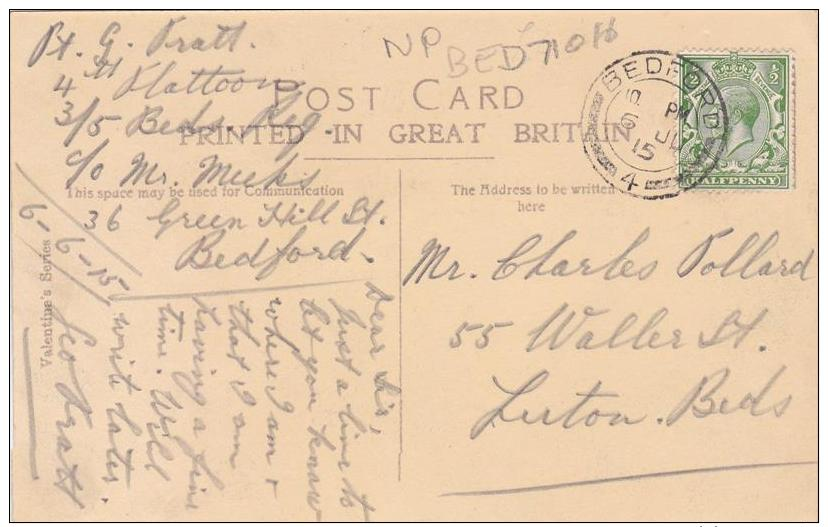 Pt. G. Pratt.
4th Plattoon
3/5 Beds. Reg.
c/o Mr. Meeks
36 Green Hill St.
Bedford.
NP
BED 710H
POST CARD
PRINTED IN GREAT BRITAIN
This space may be used for Communication
The Address to be written
here
BEDFORD
PM
6 JU
15
4
HALFPENNY
Mr. Charles Pollard
55 Waller St.
Luton. Beds
6-6-15
Dear Sir,
Just a line to
let you know
where I am &
that I am
having a fine
time. Will
write later.
Geo Pratt
Valentine's Series